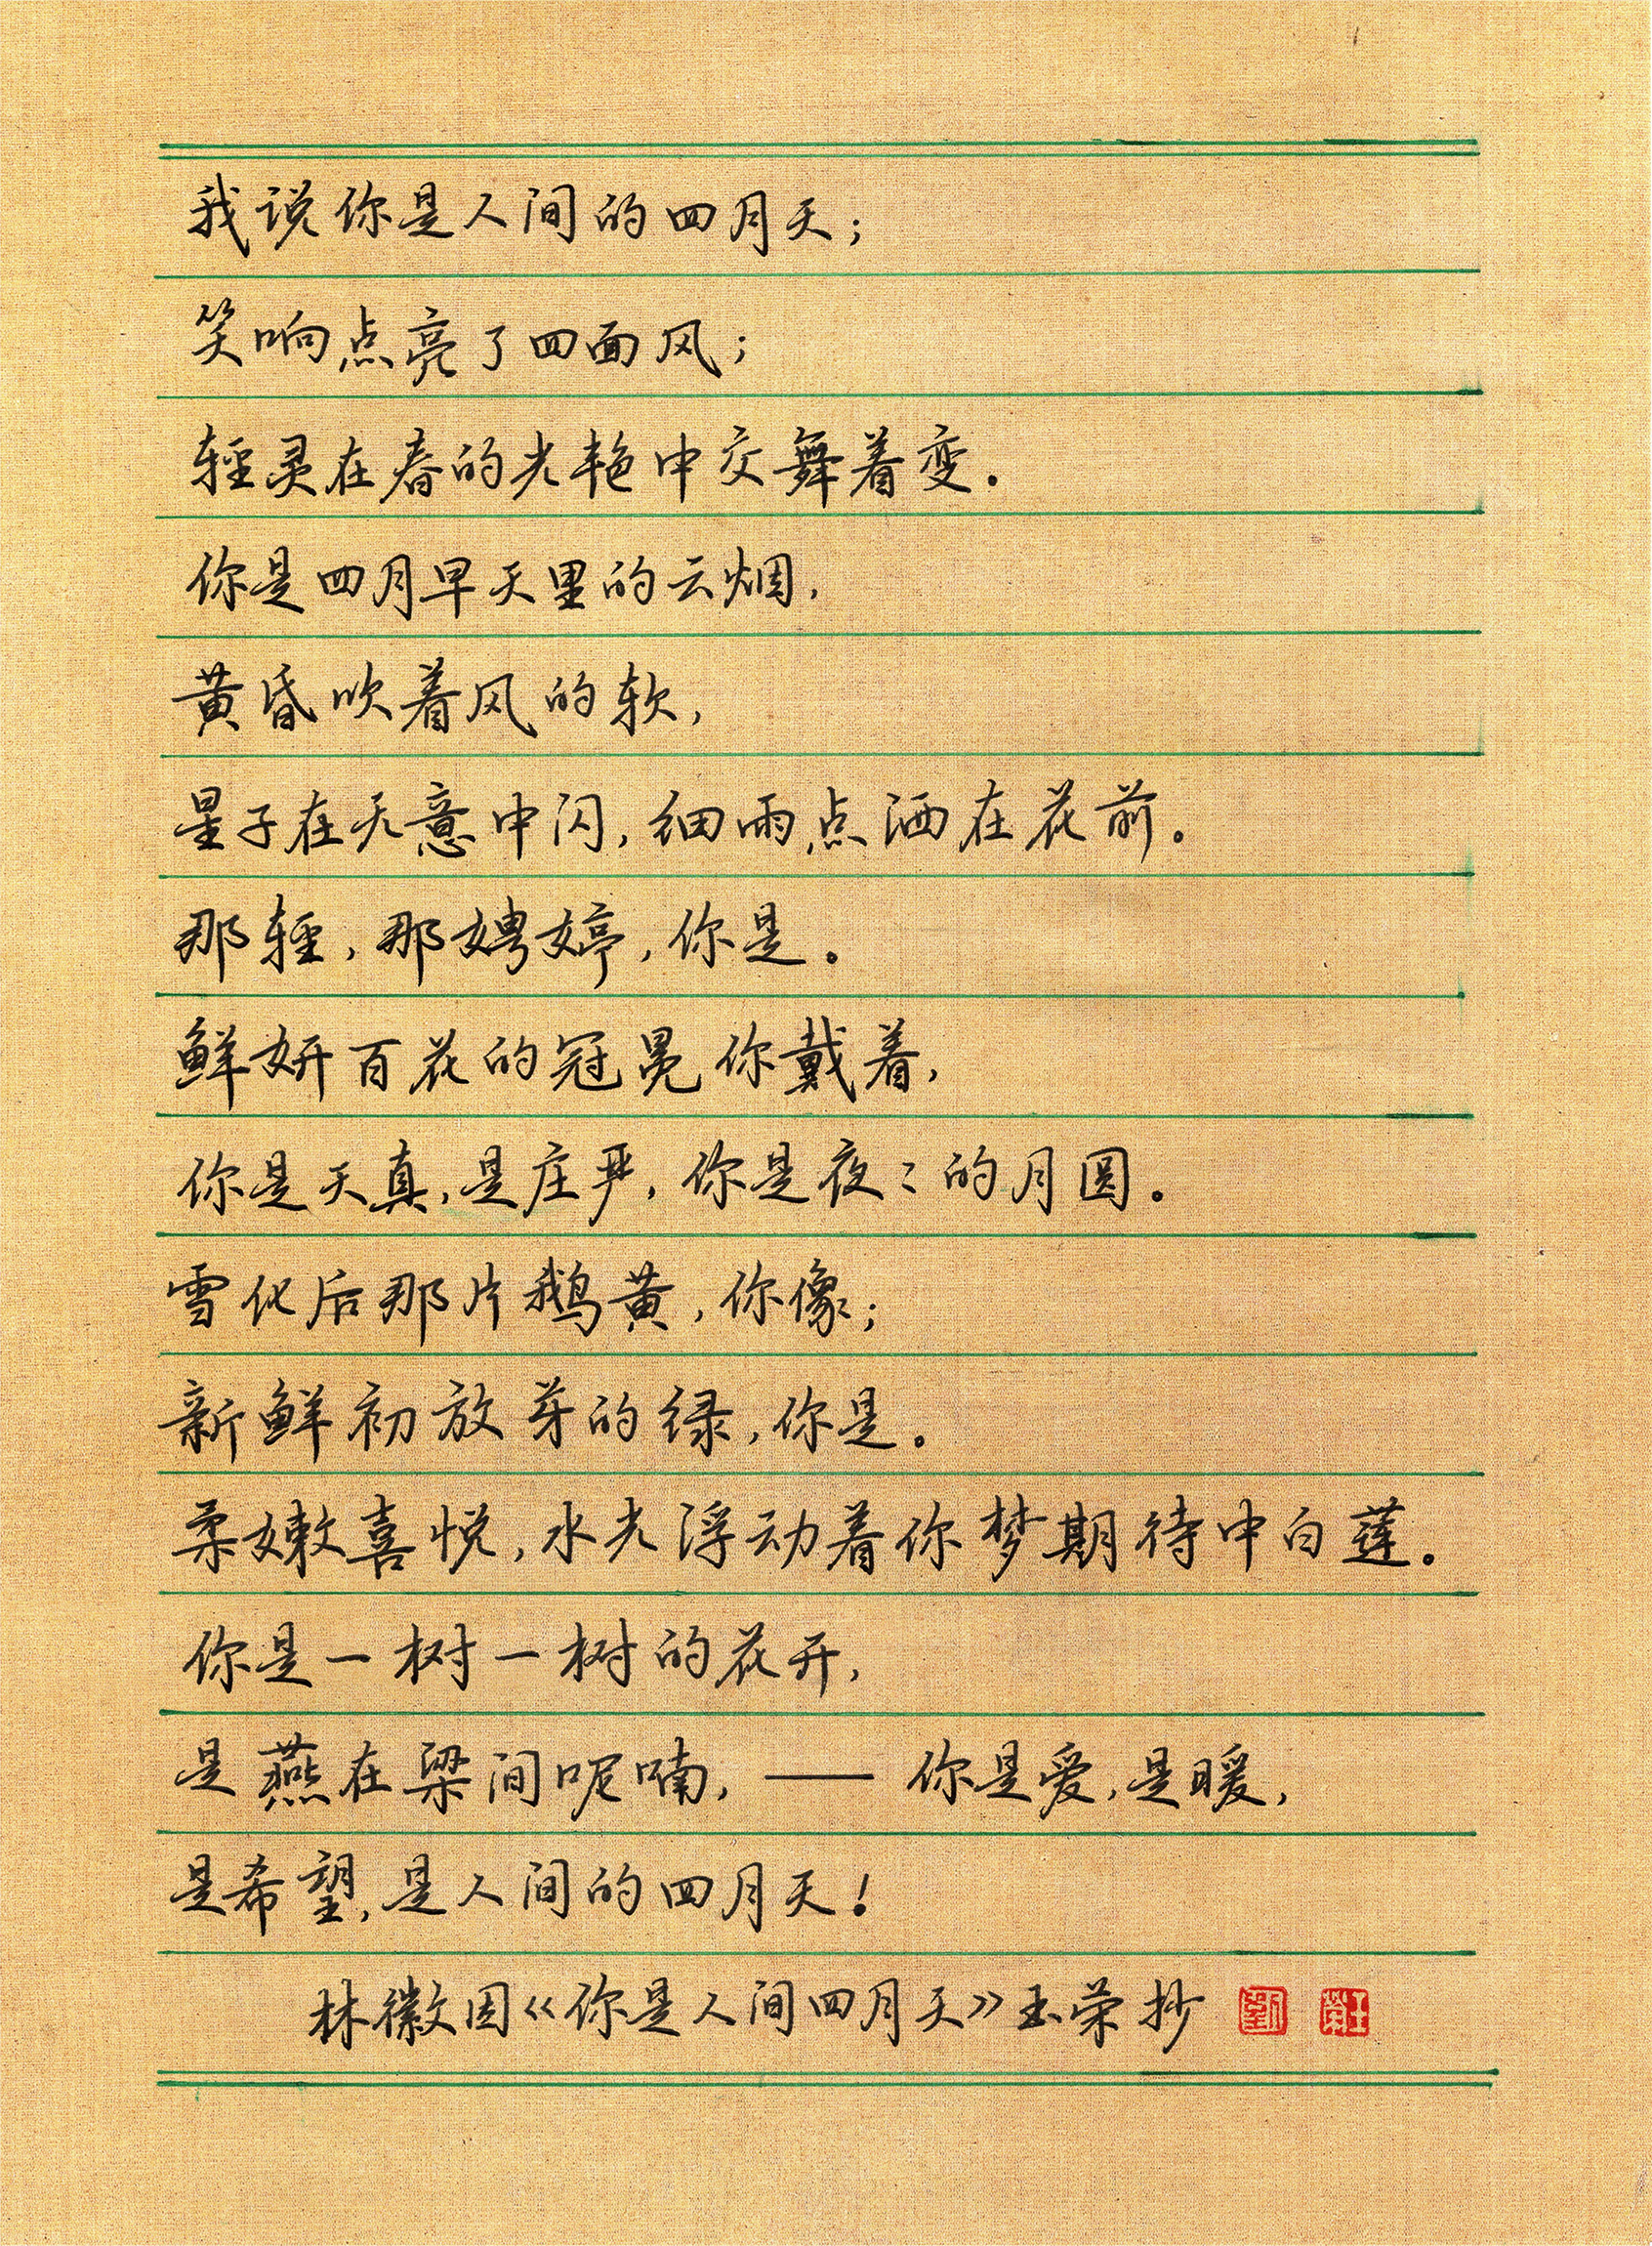 我说你是人间的四月天；
笑响点亮了四面风；
轻灵在春的光艳中交舞着变。
你是四月早天里的云烟，
黄昏吹着风的软，
星子在无意中闪，细雨点洒在花前。
那轻，那娉婷，你是。
鲜妍百花的冠冕你戴着，
你是天真，是庄严，你是夜〻的月圆。
雪化后那片鹅黄，你像；
新鲜初放芽的绿，你是。
柔嫩喜悦，水光浮动着你梦期待中白莲。
你是一树一树的花开，
是燕在梁间呢喃，—— 你是爱，是暖，
是希望，是人间的四月天！
林徽因《你是人间四月天》玉荣抄